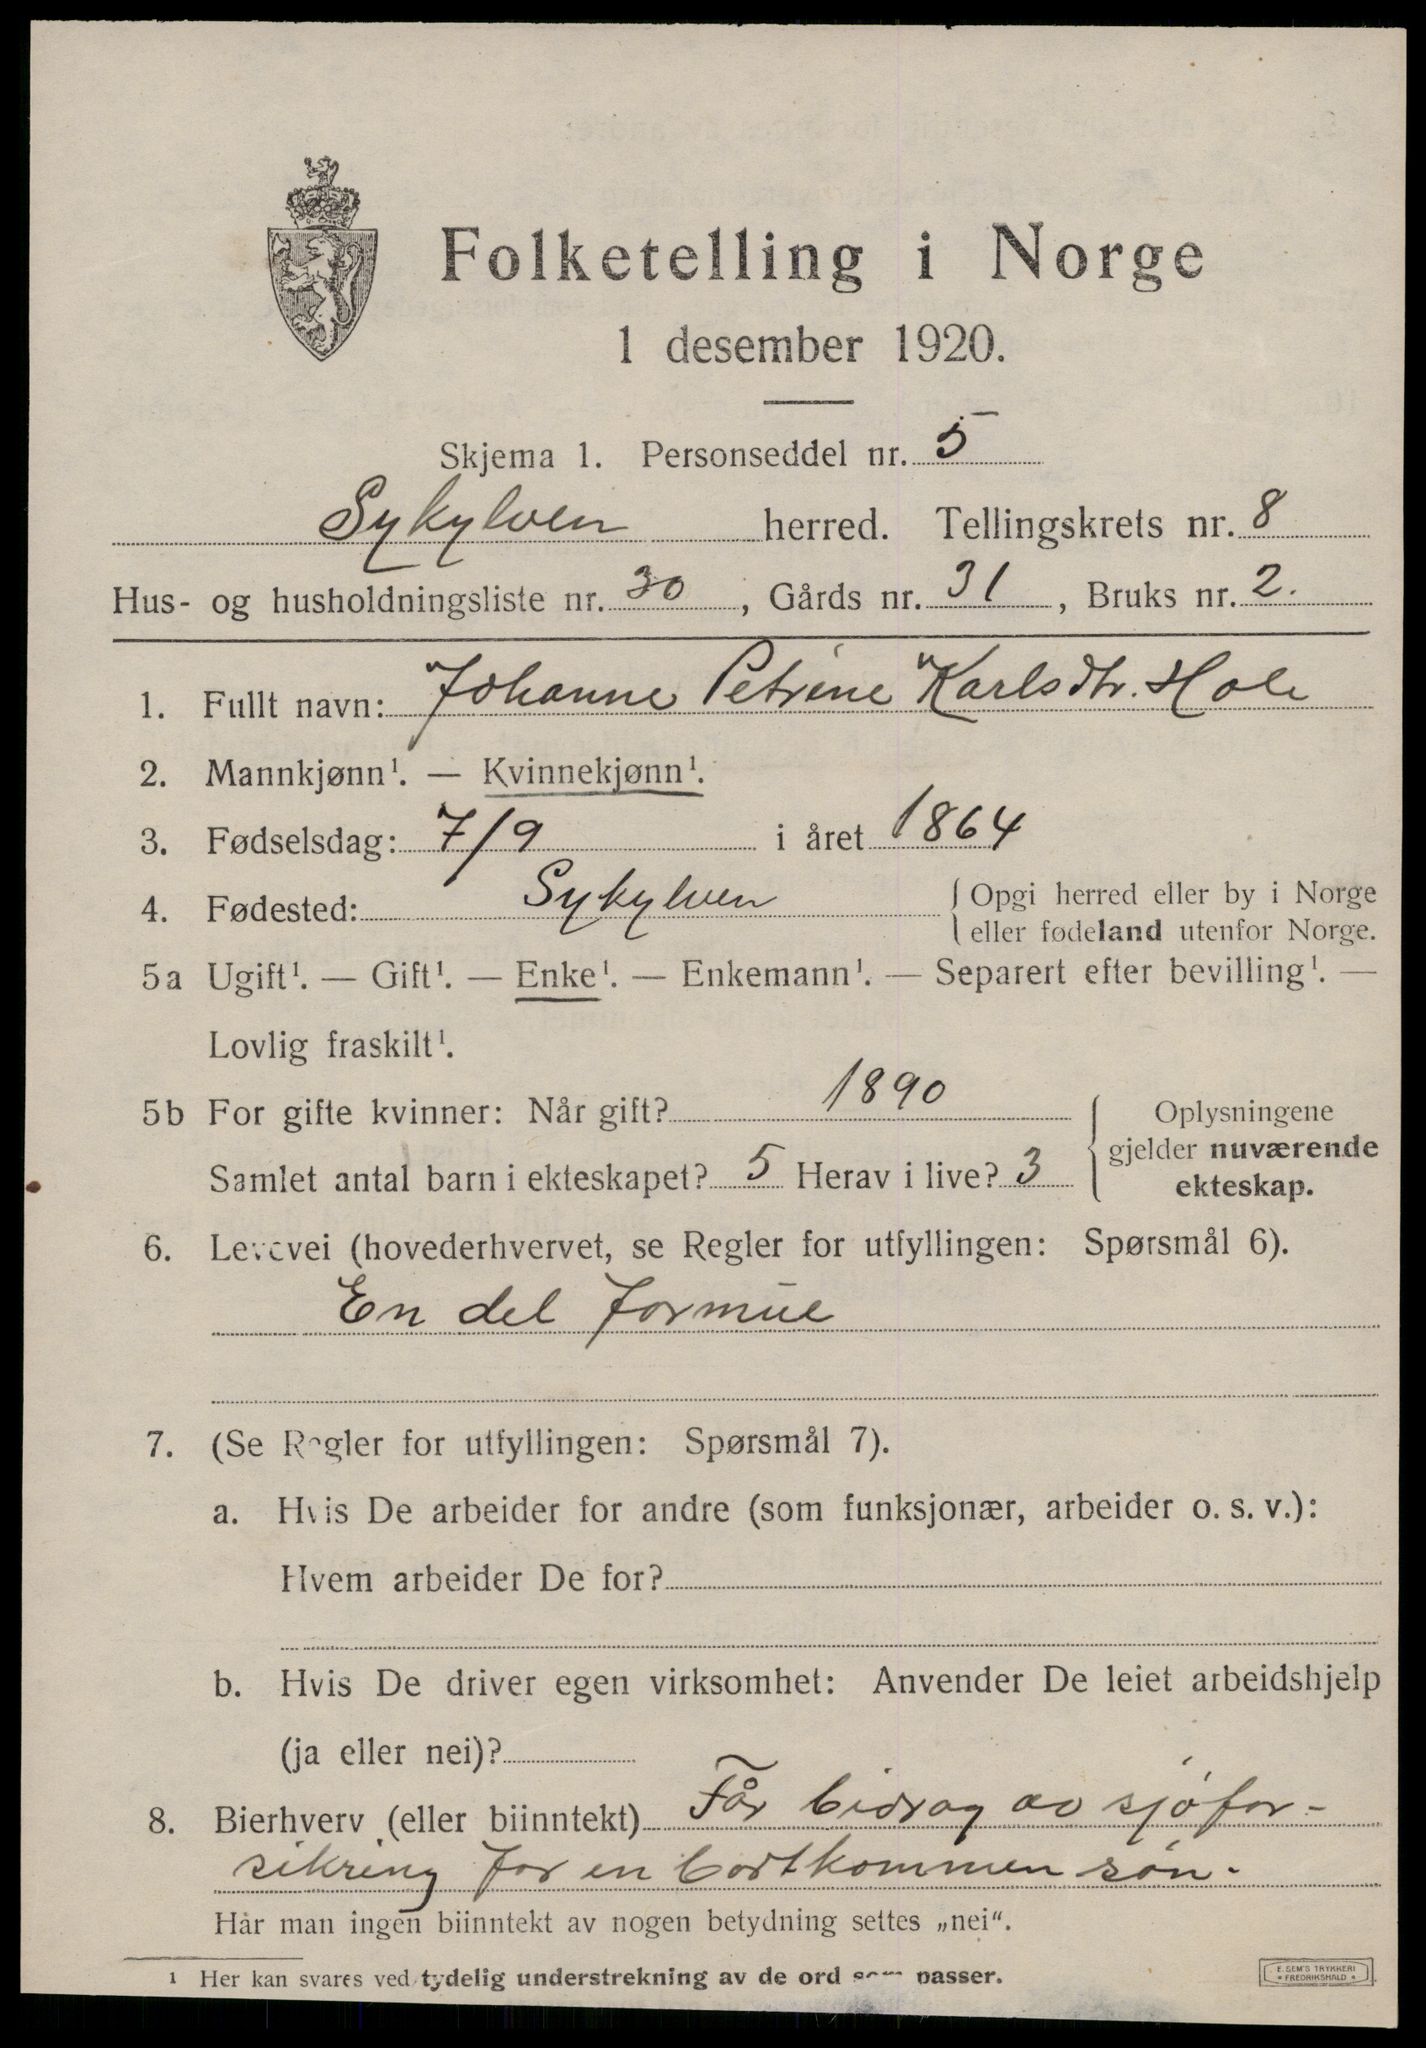 Folketelling i Norge
1 desember 1920.
Skjema 1. Personseddel nr. 5
Sykylven herred. Tellingskrets nr. 8
Hus- og husholdningsliste nr. 30, Gårds nr. 31, Bruks nr. 2.
1. Fullt navn: Johanne Petrine Karlsdtr. Hole
2. Mannkjønn¹. — Kvinnekjønn¹.
3. Fødselsdag: 7/9 i året 1864
4. Fødested: Sykylven { Opgi herred eller by i Norge
eller fødeland utenfor Norge.
5a Ugift¹. — Gift¹. — Enke¹. — Enkemann¹. — Separert efter bevilling¹. —
Lovlig fraskilt¹.
5b For gifte kvinner: Når gift? 1890
Samlet antal barn i ekteskapet? 5 Herav i live? 3
{ Oplysningene
gjelder nuværende
ekteskap.
6. Levevei (hovederhvervet, se Regler for utfyllingen: Spørsmål 6).
En del formue
7. (Se Regler for utfyllingen: Spørsmål 7).
a. Hvis De arbeider for andre (som funksjonær, arbeider o. s. v.):
Hvem arbeider De for?
b. Hvis De driver egen virksomhet: Anvender De leiet arbeidshjelp
(ja eller nei)?
8. Bierhverv (eller biinntekt) Får bidrag av sjøfor-
sikring for en bortkommen søn.
Har man ingen biinntekt av nogen betydning settes „nei“.
¹ Her kan svares ved tydelig understrekning av de ord som passer.
E. SEM'S TRYKKERI
* FREDRIKSHALD *